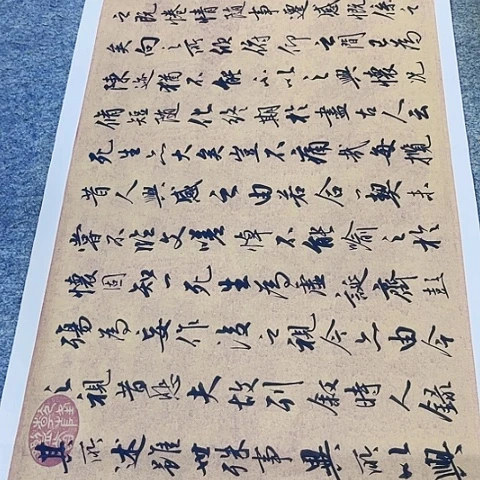 之既惓情隨事遷感慨係之
矣向之所欣俛仰之間以為
陳迹猶不能不以之興懷況
脩短隨化終期於盡古人云
死生亦大矣豈不痛哉每攬
昔人興感之由若合一契未
嘗不臨文嗟悼不能喻之於
懷固知一死生為虛誕齊彭
殤為妄作後之視今亦由今
之視昔悲夫故列敘時人錄
其所述雖世殊事異所以興